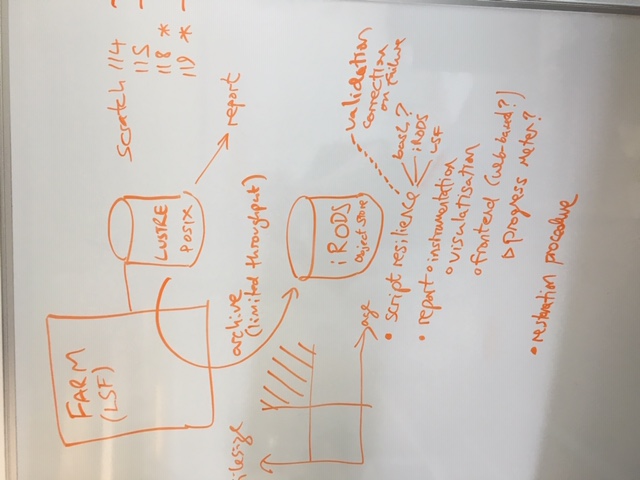 FARM
(LSF)
LUSTRE
POSIX
scratch 114
115
118 *
119 *
report
archive
(limited throughput)
ilesize
age
iRODS
Object Store
• script resilience
bash?
iRODS
LSF
validation
correction
on failure
• report
○ instrumentation
○ visulatisation
○ frontend (web-based?)
▷ progress meter?
• restoration procedure